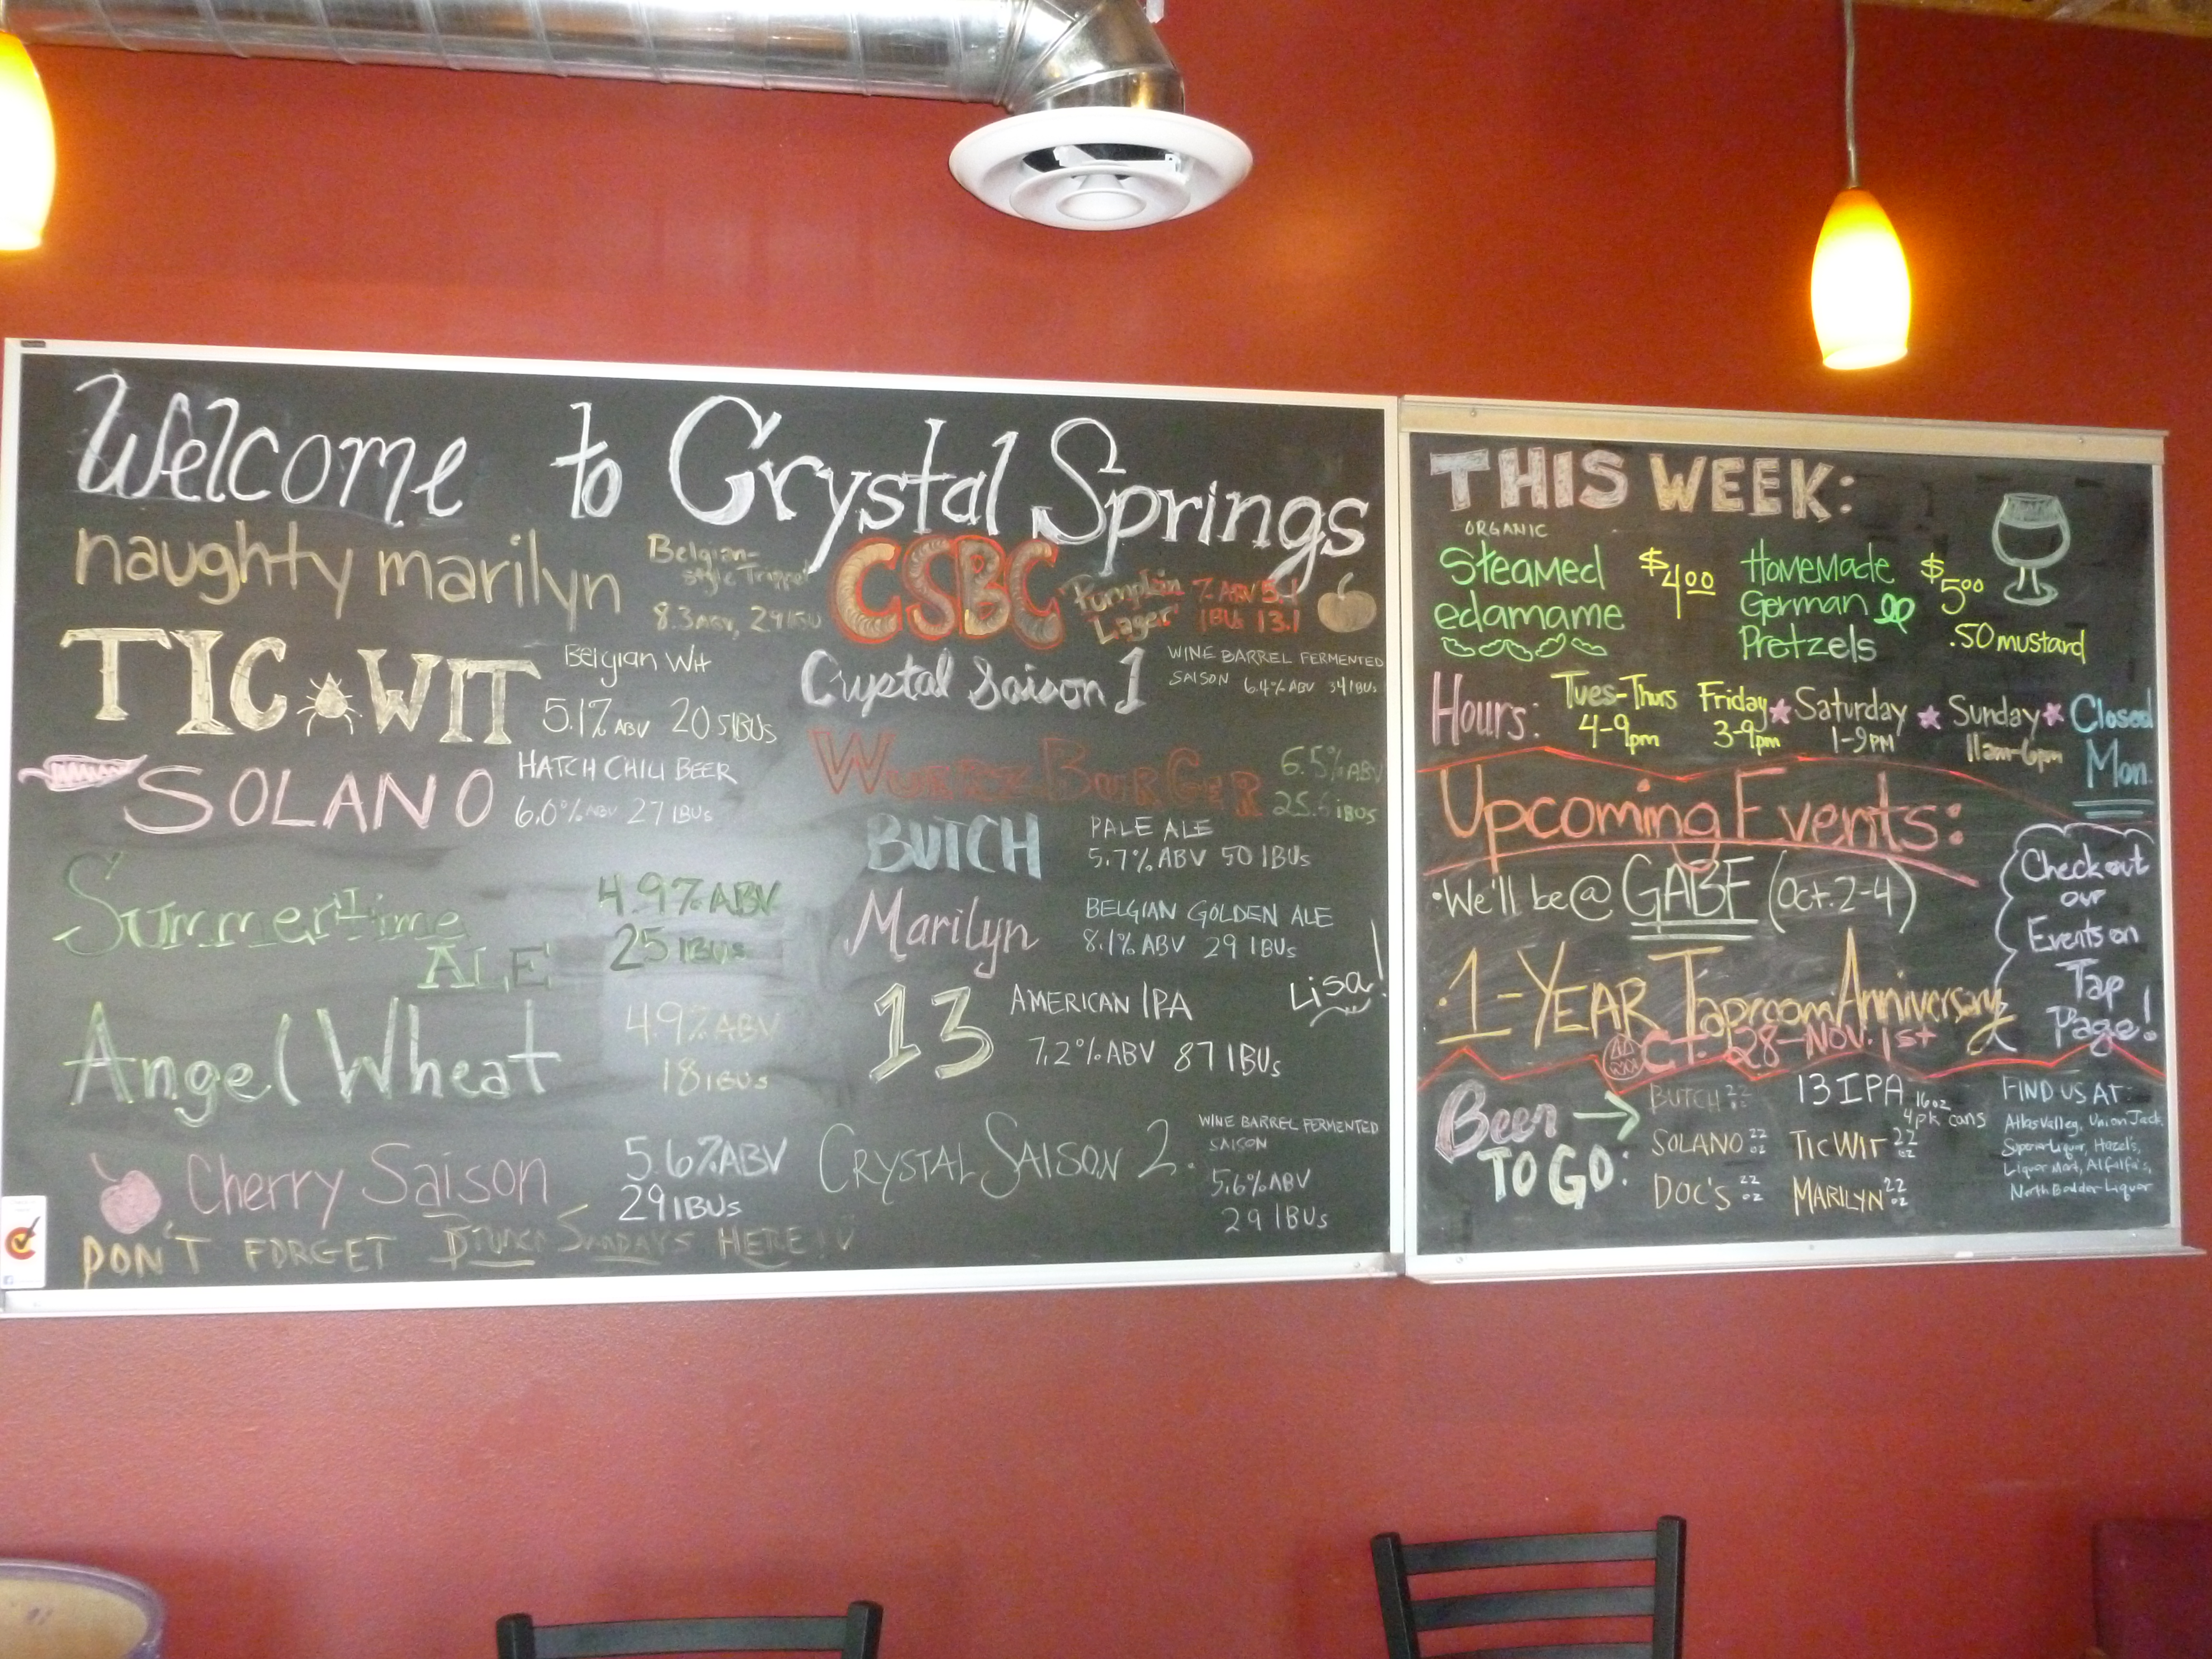 Welcome to Crystal Springs
naughty marilyn
Belgian-
style Trippel
8.3ABV, 29 IBU
TIC WIT
Belgian Wit
5.17 ABV 20.5 IBUs
SOLANO
HATCH CHILI BEER
6.0% ABV 27 IBUs
Summertime
ALE
4.9% ABV
25 IBUs
Angel Wheat
4.9% ABV
18 IBUs
Cherry Saison
5.6% ABV
29 IBUs
DON'T FORGET SUNDAYS HERE!
CSBC
Pumpkin
Lager
IBUs 13.1
Crystal Saison 1
WINE BARREL FERMENTED
SAISON 6.4% ABV 34 IBUs
6.5% ABV
IBUS
BUTCH
PALE ALE
5.7% ABV 50 IBUs
Marilyn
BELGIAN GOLDEN ALE
8.1% ABV 29 IBUs
Lisa!
13
AMERICAN IPA
7.2% ABV 87 IBUs
CRYSTAL SAISON 2.
WINE BARREL FERMENTED
SAISON
5.6% ABV
29 IBUs
THIS WEEK:
ORGANIC
Steamed
edamame
$4.00
Homemade
German
Pretzels
$5.00
.50 mustard
Hours:
Tues-Thurs
4-9pm
Friday
3-9pm
Saturday
1-9PM
Sunday
11am-6pm
Closed
Mon.
Upcoming Events:
• We'll be @ GABF (Oct. 2-4)
• 1-YEAR Taproom Anniversary
OCT. 28-NOV. 1st
Check out
our
Events on
Tap
Page!
Beer →
TO GO:
BUTCH 22 oz
SOLANO 22 oz
DOC'S 22 oz
13 IPA 16oz
4pk cans
TIC WIT 22 oz
MARILYN 22 oz
FIND US AT:
Atlas Valley, Union Jack,
Superior Liquor, Hazel's,
Liquor Mart, Alfalfa's,
North Boulder Liquor